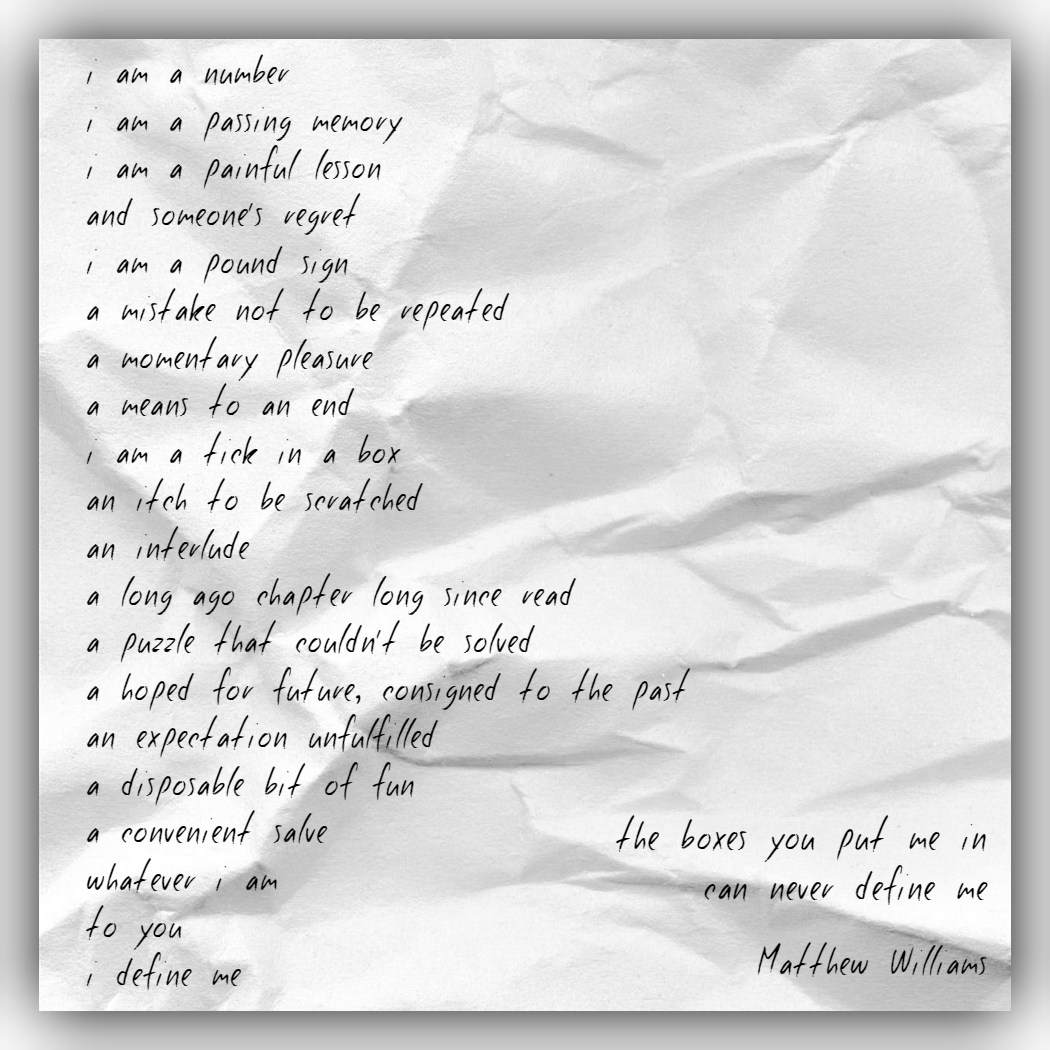 i am a number
i am a passing memory
i am a painful lesson
and someone's regret
i am a pound sign
a mistake not to be repeated
a momentary pleasure
a means to an end
i am a tick in a box
an itch to be scratched
an interlude
a long ago chapter long since read
a puzzle that couldn't be solved
a hoped for future, consigned to the past
an expectation unfulfilled
a disposable bit of fun
a convenient salve
whatever i am
to you
i define me
the boxes you put me in
can never define me
Matthew Williams